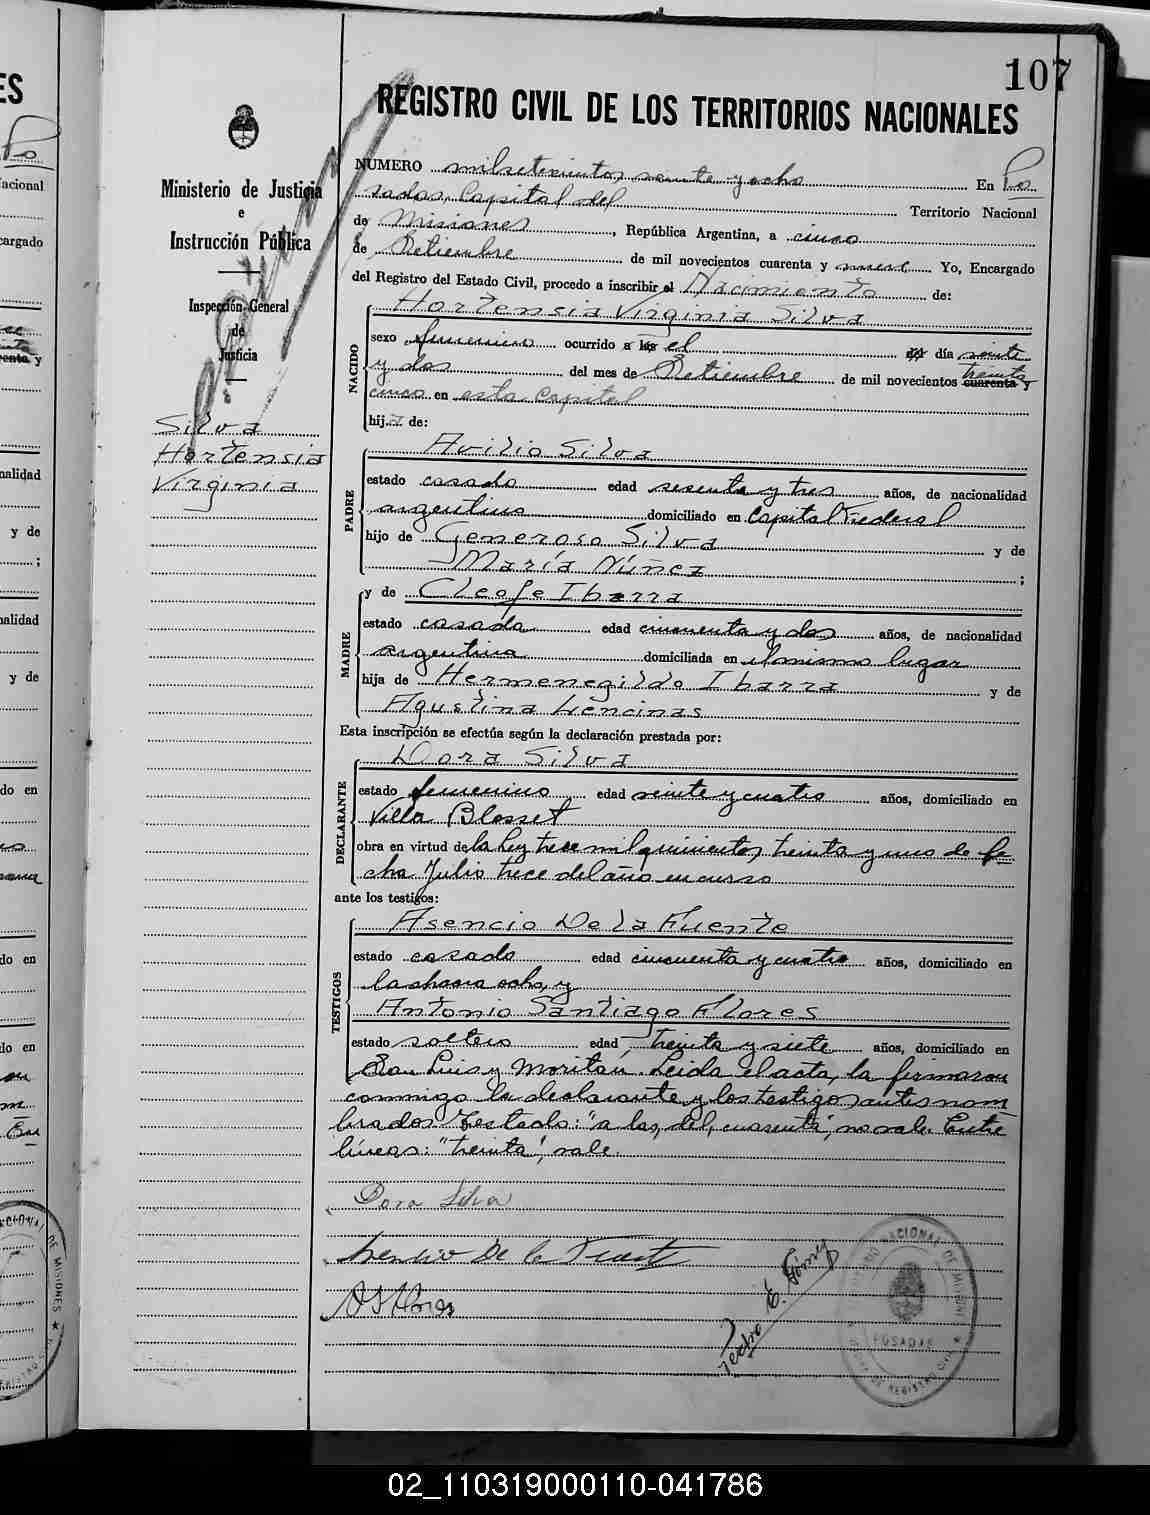 107
REGISTRO CIVIL DE LOS TERRITORIOS NACIONALES
Ministerio de Justicia
e
Instrucción Pública
Inspección General
de
Justicia
Silva
Hortensia
Virginia
NUMERO milsetecientos veinte y ocho En Po
sadas, Capital del Territorio Nacional
de Misiones, República Argentina, a cinco
de Setiembre de mil novecientos cuarenta y nueve Yo, Encargado
del Registro del Estado Civil, procedo a inscribir el Nacimiento de:
Hortensia Virginia Silva
NACIDO
sexo femenino ocurrido a las el del día veinte
y dos del mes de Setiembre de mil novecientos cuarenta treinta y
cinco en esta Capital
hija de:
PADRE
Avilio Silva
estado casado edad sesenta y tres años, de nacionalidad
argentino domiciliado en Capital Federal
hijo de Generoso Silva y de
María Núñez ;
MADRE
y de Cleofe Ibarra
estado casada edad cincuenta y dos años, de nacionalidad
argentina domiciliada en el mismo lugar
hija de Hermenegildo Ibarra y de
Agustina Lencinas
Esta inscripción se efectúa según la declaración prestada por:
DECLARANTE
Dora Silva
estado femenino edad veinte y cuatro años, domiciliado en
Villa Blosset
obra en virtud de la ley trece mil quinientos treinta y uno de fe-
cha Julio trece del año en curso
ante los testigos:
TESTIGOS
Asencio De la Fuente
estado casado edad cincuenta y cuatro años, domiciliado en
la chacra ocho, y
Antonio Santiago Flores
estado soltero edad treinta y siete años, domiciliado en
San Luis y Moritan. Leida el acta, la firmaron
conmigo la declarante y los testigos antes nom
brados Testado: "a las, del, cuarenta", no vale. Entre
líneas: "treinta", vale.
Dora Silva
Asencio De la Fuente
A S Flores
Pedro E. Gómez
POSADAS
02_110319000110-041786